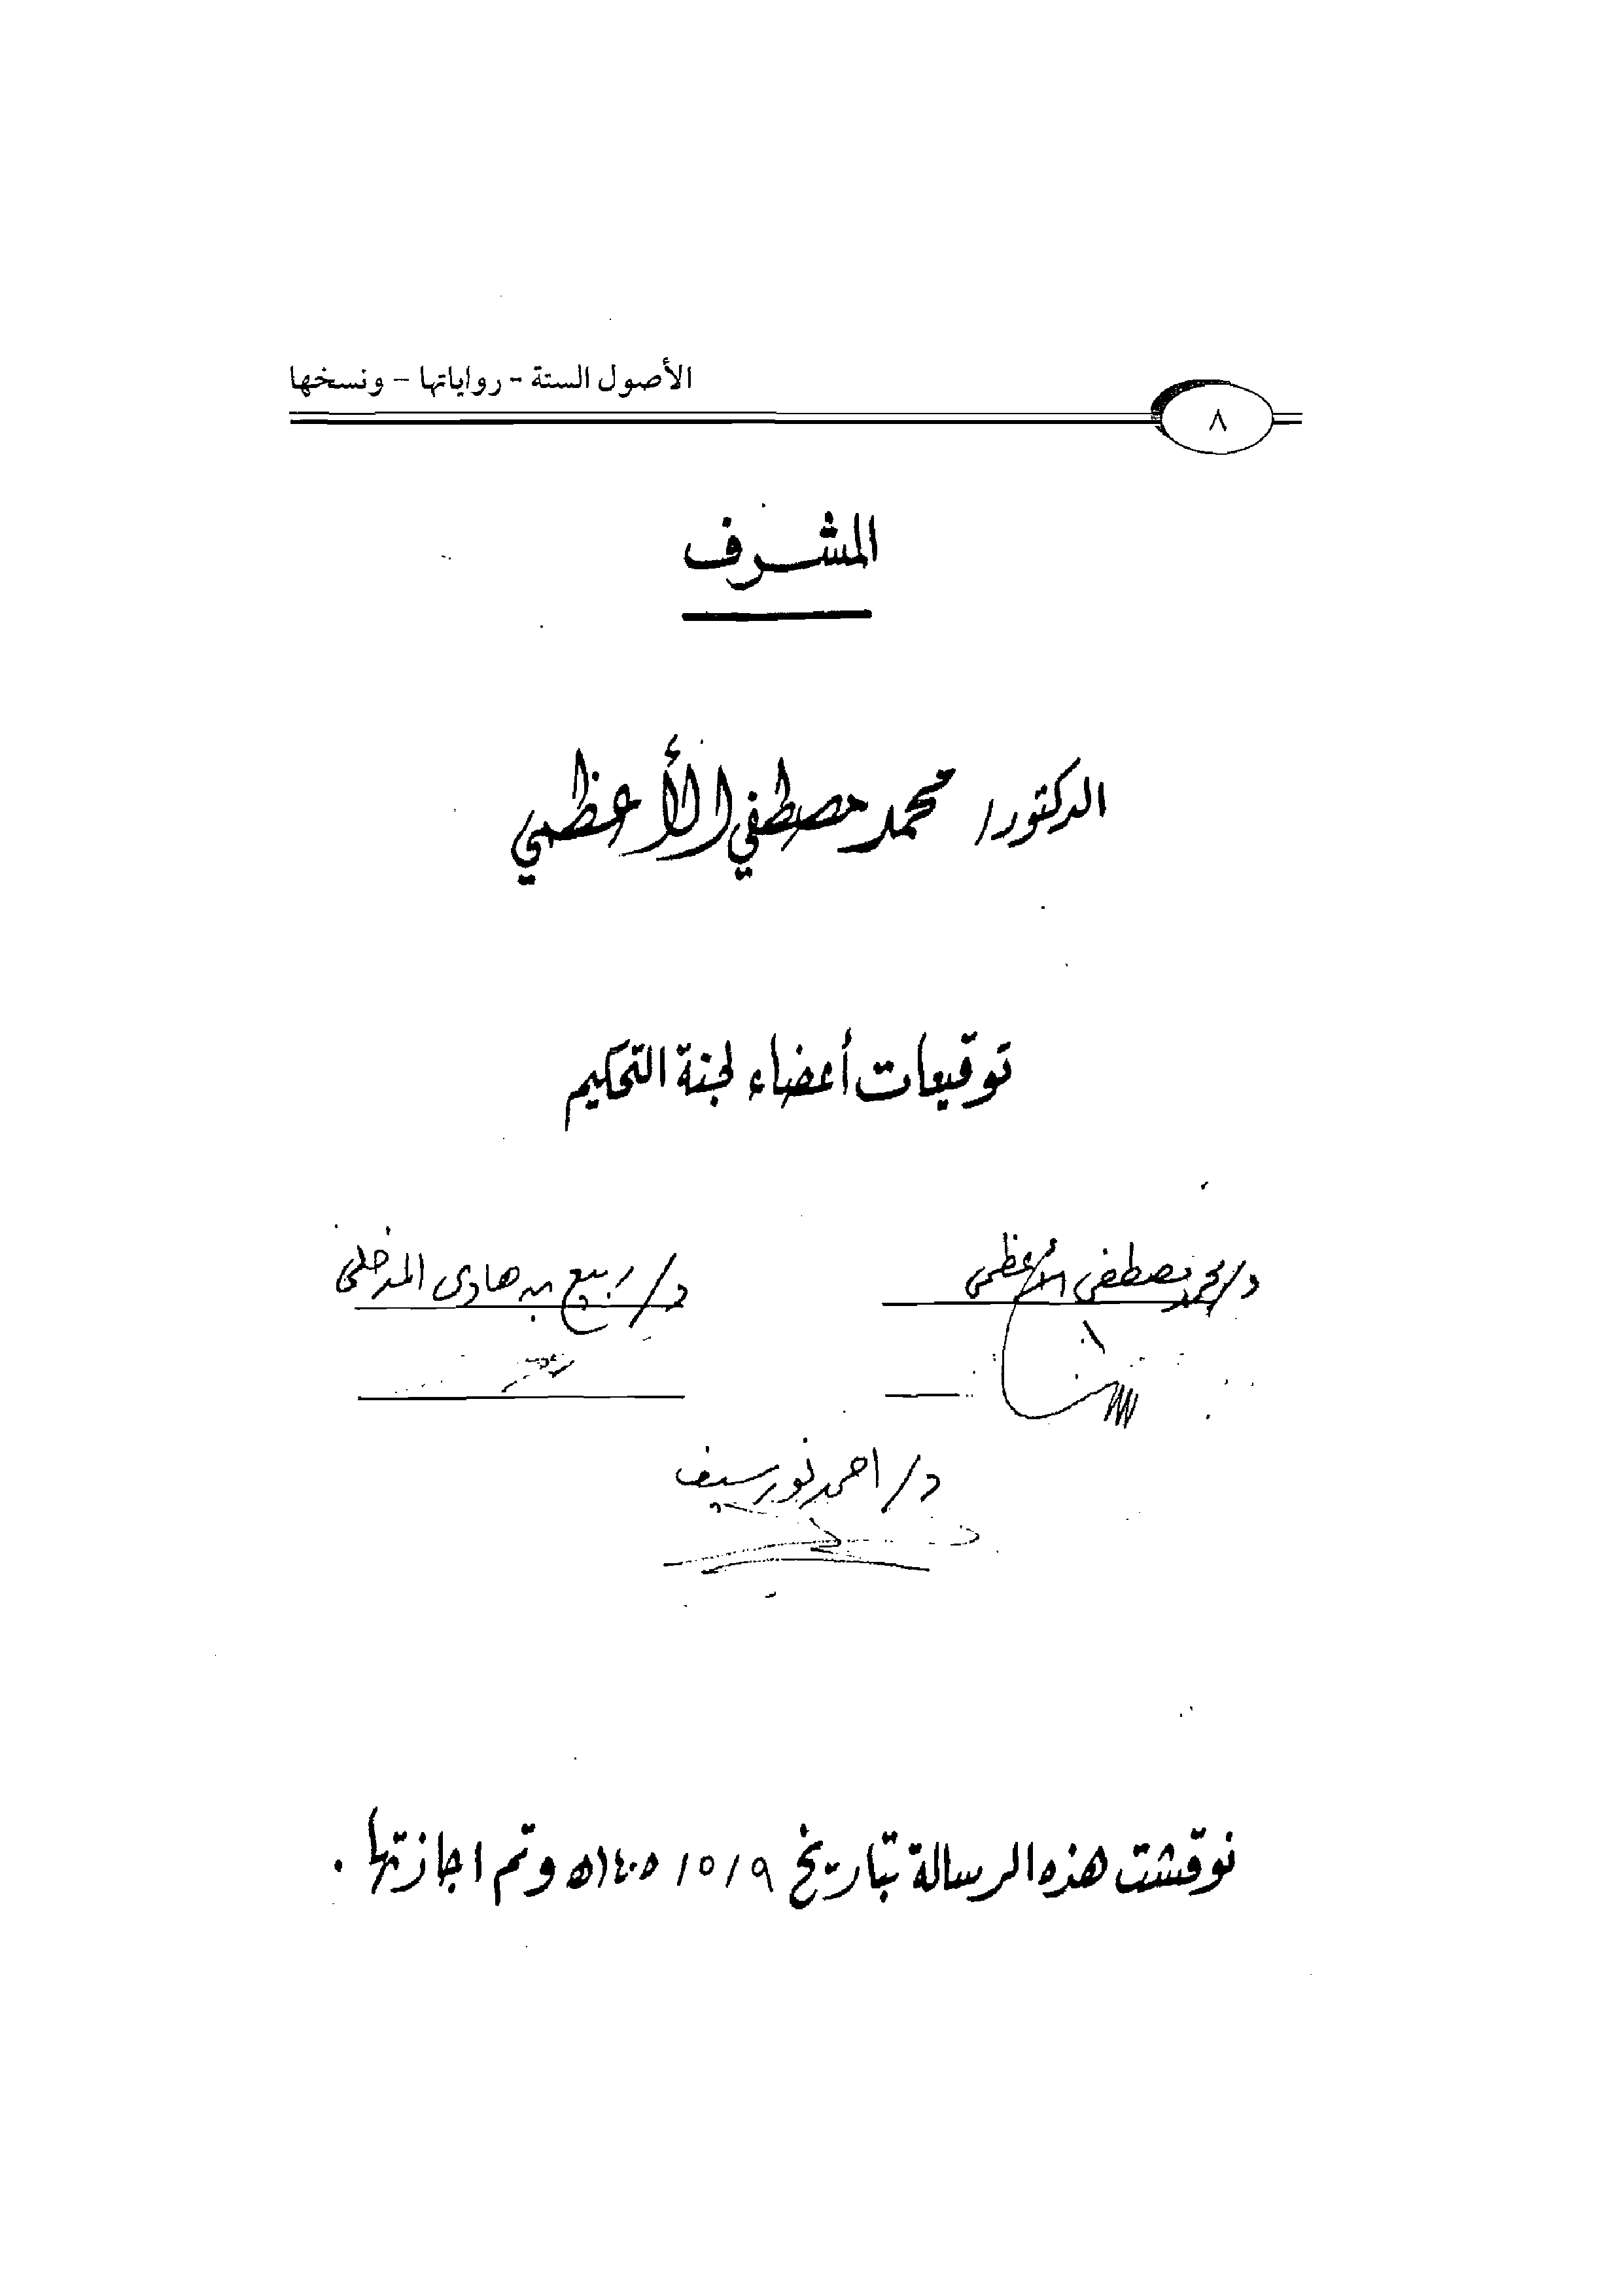 الأصول الستة - رواياتها - ونسخها
٨
المشرف
الدكتور/ محمد مصطفي الأعظمي
توقيعات أعضاء لجنة التحكيم
د/ محمد مصطفى الأعظمى
د/ ربيع بن هادى المدخلى
د/ احمد نور سيف
نوقشت هذه الرسالة بتاريخ ٩/ ٥/ ١٤٠٥ه وتم اجازتها .